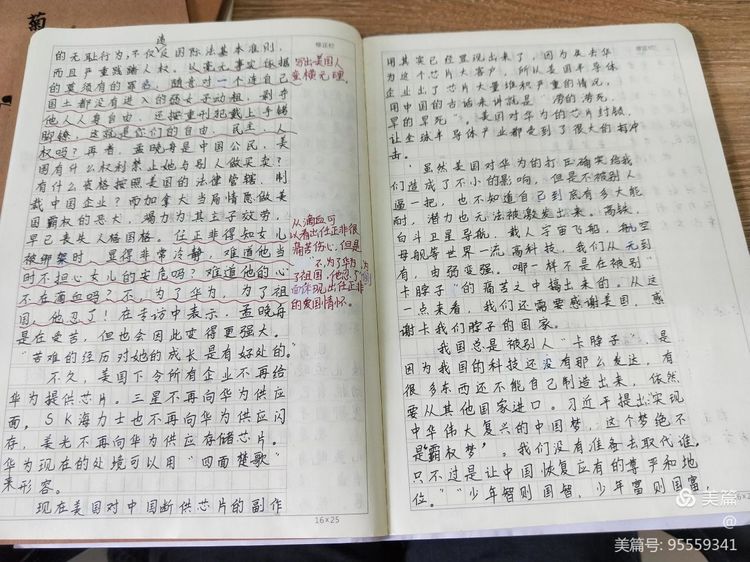 菊
违
的无耻行为,不仅反国际法基本准则,
而且严重践踏人权。从毫无事实依据
的莫须有的罪名,随意对一个连自己
国土都没有进入的弱女子动粗,剥夺
他人人身自由,还按重刑犯戴上手铐
脚镣,这就是你们的自由、民主、人
权吗?再者,孟晚舟是中国公民,美
国有什么权利禁止她与别人做买卖?
有什么资格按照美国的法律管辖、制
裁中国企业?而加拿大当局情愿做美
国霸权的恶犬,竭力为其主子效劳,
早已丧失人格国格。任正非得知女儿
被绑架时,显得非常冷静,难道他当
时不担心女儿的安危吗?难道他的心
不在滴血吗?不,为了华为,为了祖
国,他忍了!在采访中表示,孟晚舟
是在受苦,但也会因此变得更强大。
"苦难的经历对她的成长是有好处的。"
不久,美国下令所有企业不再给
华为提供芯片。三星不再向华为供应
面,SK海力士也不再向华为供应闪
存,美光不再向华为供应存储芯片。
华为现在的处境可以用"四面楚歌"
来形容。
现在美国对中国断供芯片的副作
16×25
写出美国人
蛮横无理。
从滴血可
以看出任正非很
痛苦伤心,但是
"不,为了华为,为
了祖国,他忍了"
体现出任正非
的爱国情怀。
修正栏
用其实已经显现出来了,因为失去华
为这个芯片大客户,所以美国半导体
企业出了芯片大量堆积严重的情况,
用中国的古话来讲就是"涝的涝死,
旱的旱死"。美国对华为的芯片封锁,
让全球半导体产业都受到了很大的冲
击。
虽然美国对华为的打压确实给我
们造成了不小的影响,但是不被别人
逼一把,也不知道自己到底有多大能
耐,潜力也无法被激发出来。高铁,
北斗卫星导航,载人宇宙飞船,航空
母舰等世界一流高科技,我们从无到
有,由弱变强。哪一样不是在被别"
卡脖子"的痛苦之中搞出来的。从这
一点来看,我们还需要感谢美国,感
谢卡我们脖子的国家。
我国总是被别人"卡脖子",是
因为我国的科技还没有那么发达,有
很多东西还不能自己制造出来,依然
要从其他国家进口。习近平提出:实现
中华伟大复兴的中国梦,这个梦绝不
是"霸权梦"。我们没有准备去取代谁,
只不过是让中国恢复应有的尊严和地
位。""少年智则国智,少年富则国富,
修正栏
美篇
@
美篇号: 95559341